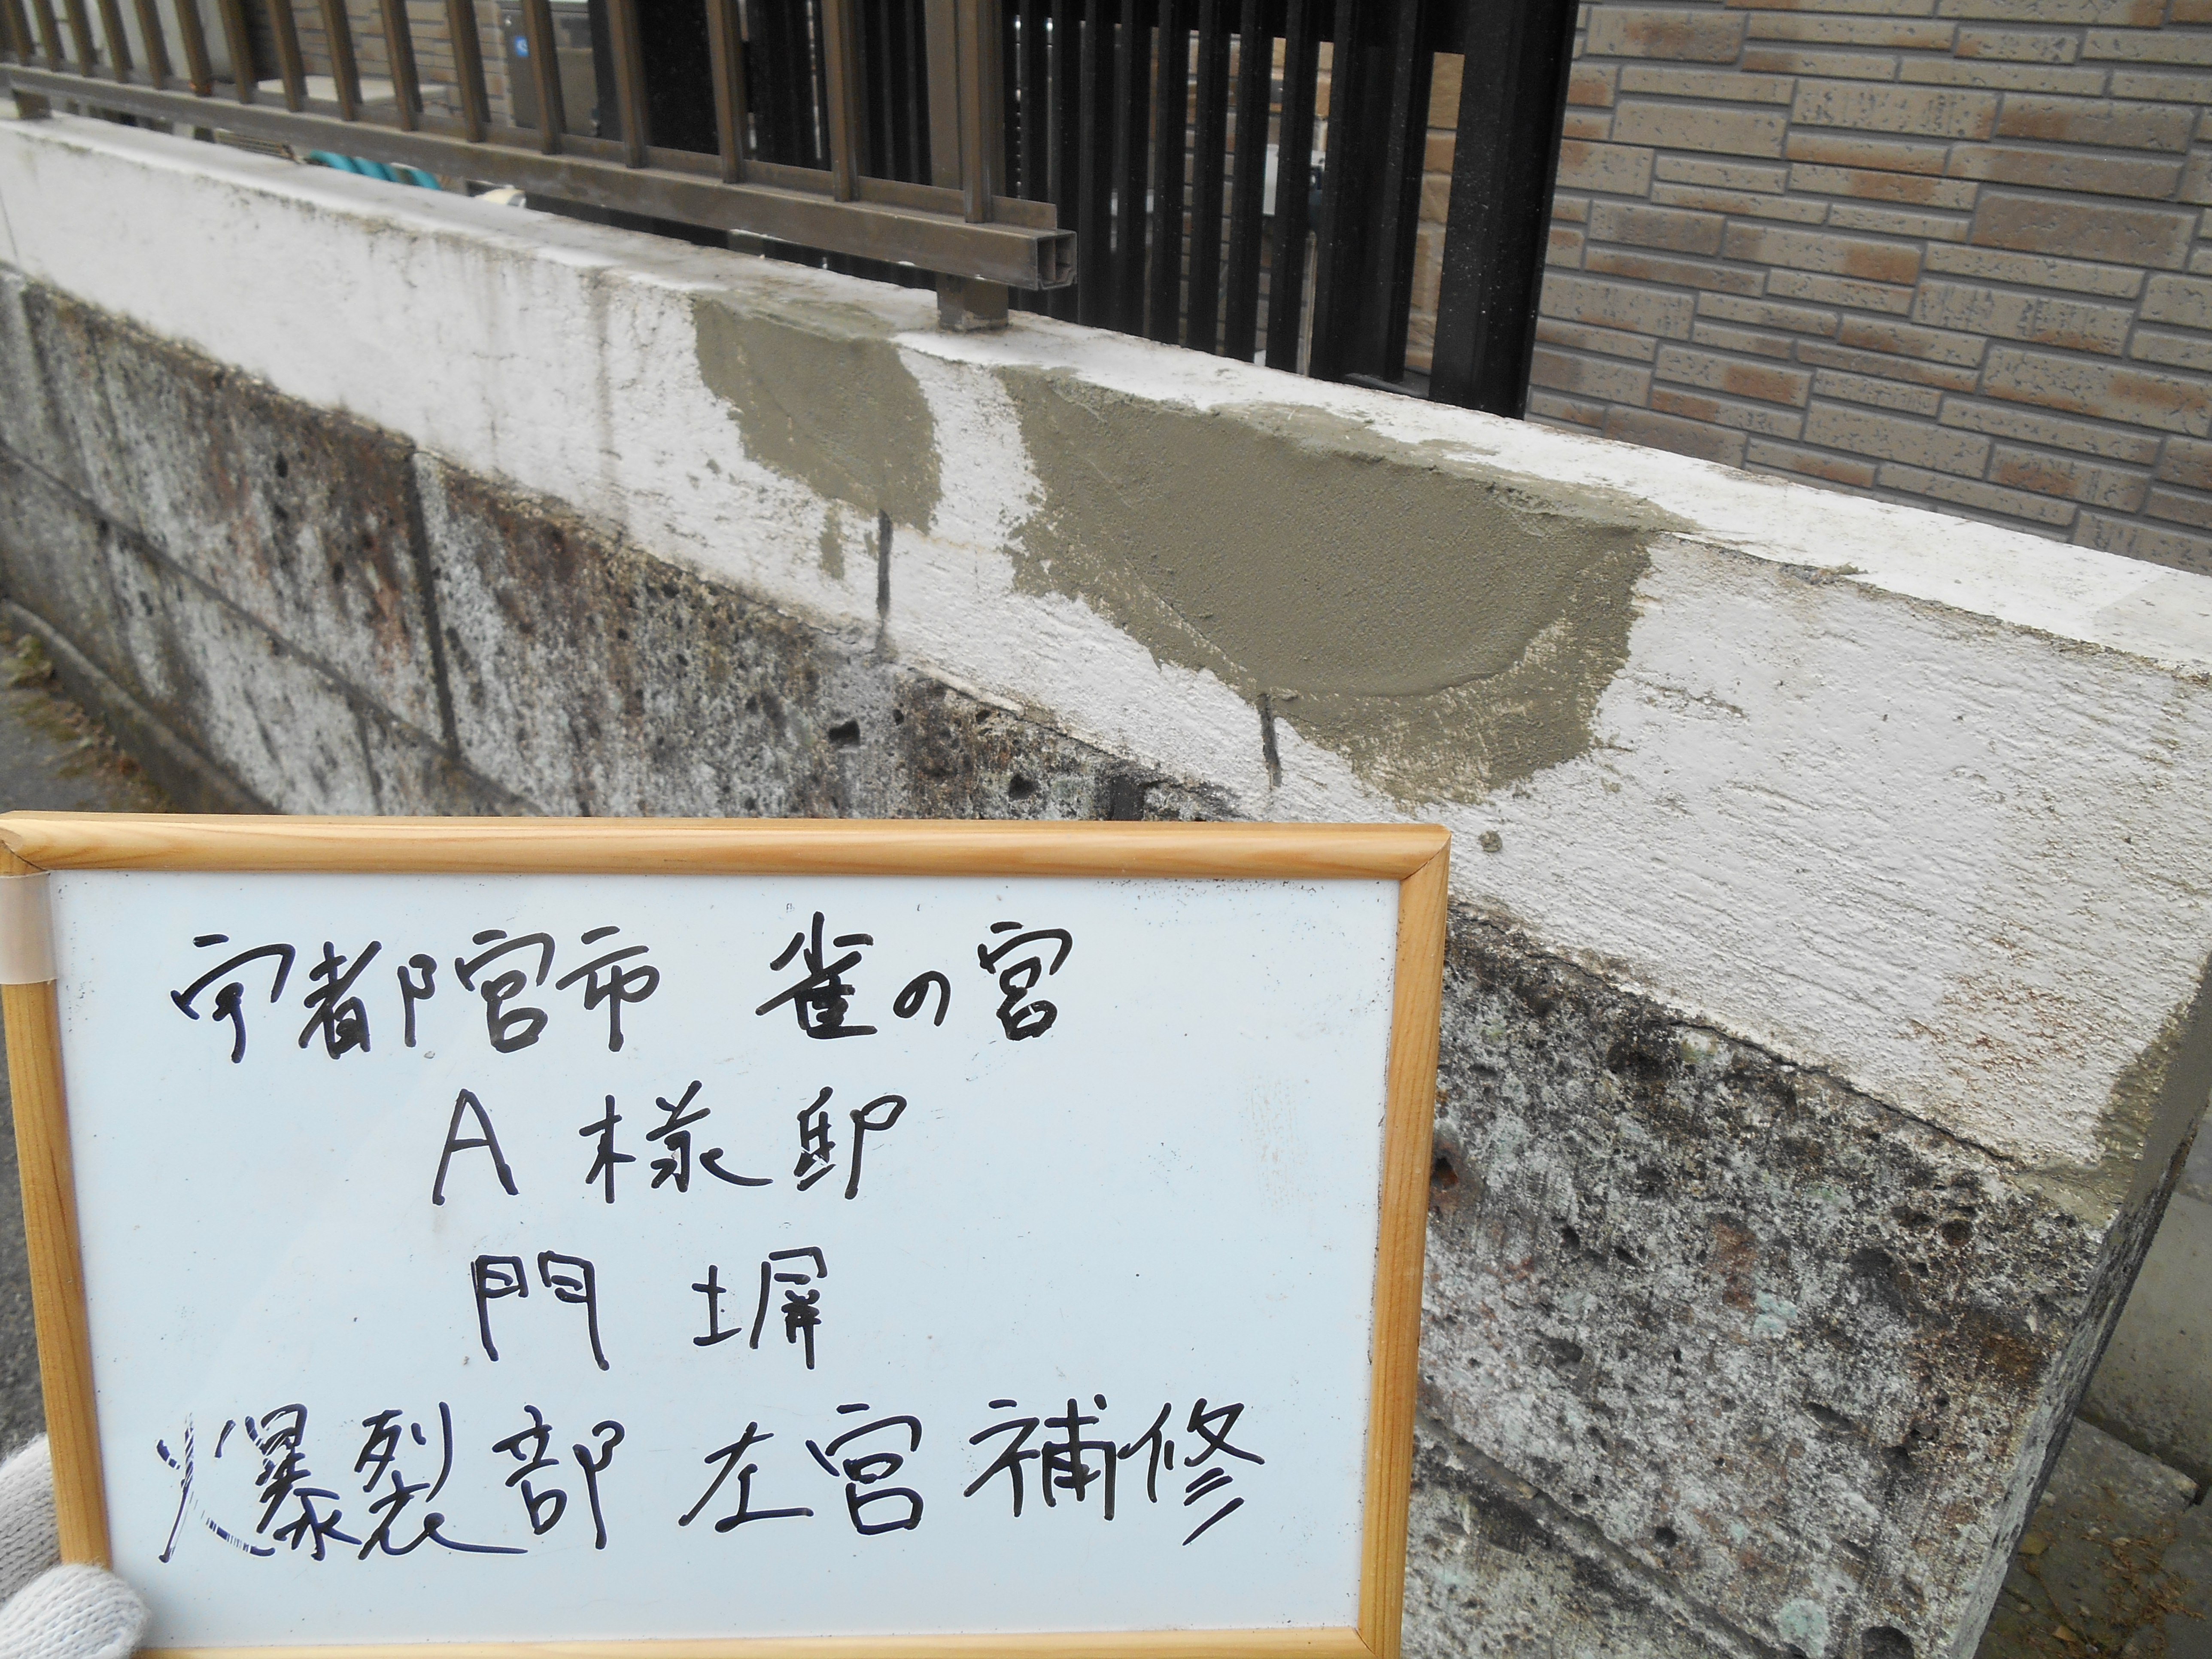 宇都宮市 雀の宮
A様邸
門 塀
爆裂部 左官補修